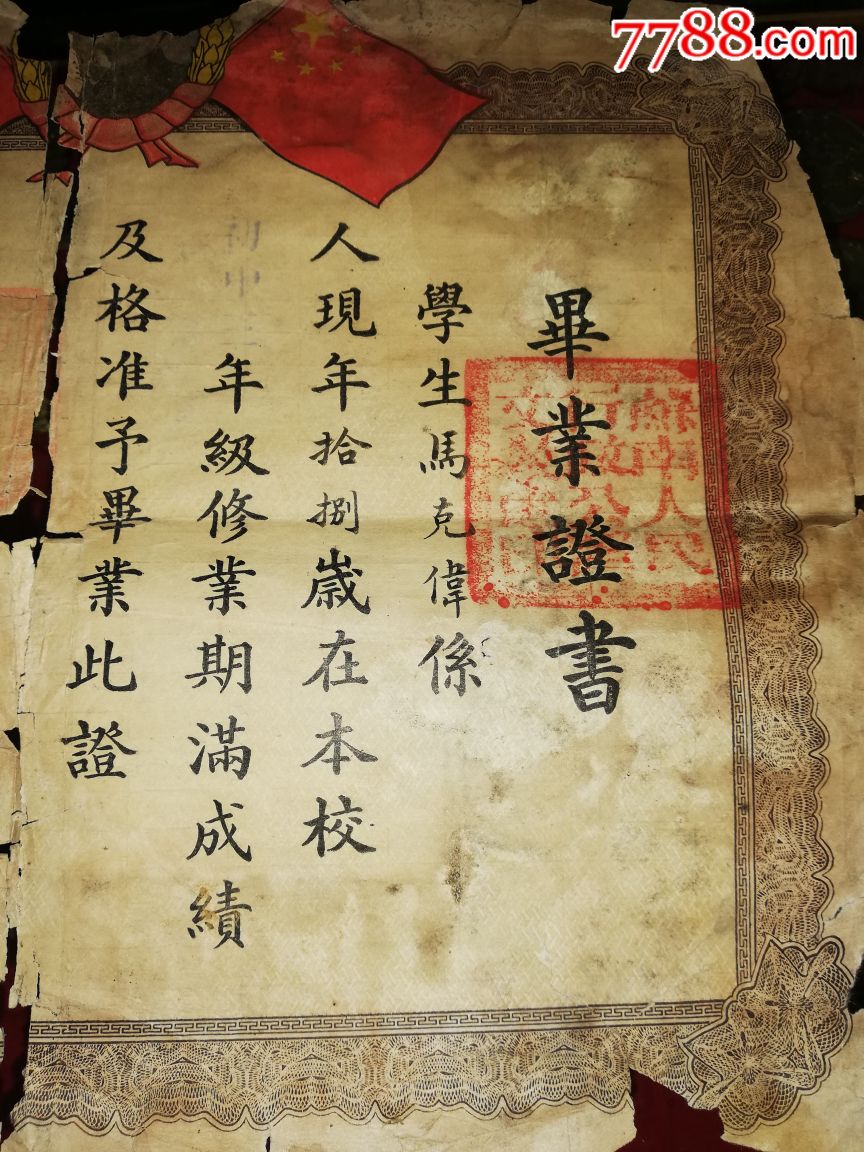 7788.com
畢業證書
學生馬克偉係
人現年拾捌歲在本校
初中 年級修業期滿成績
及格准予畢業此證